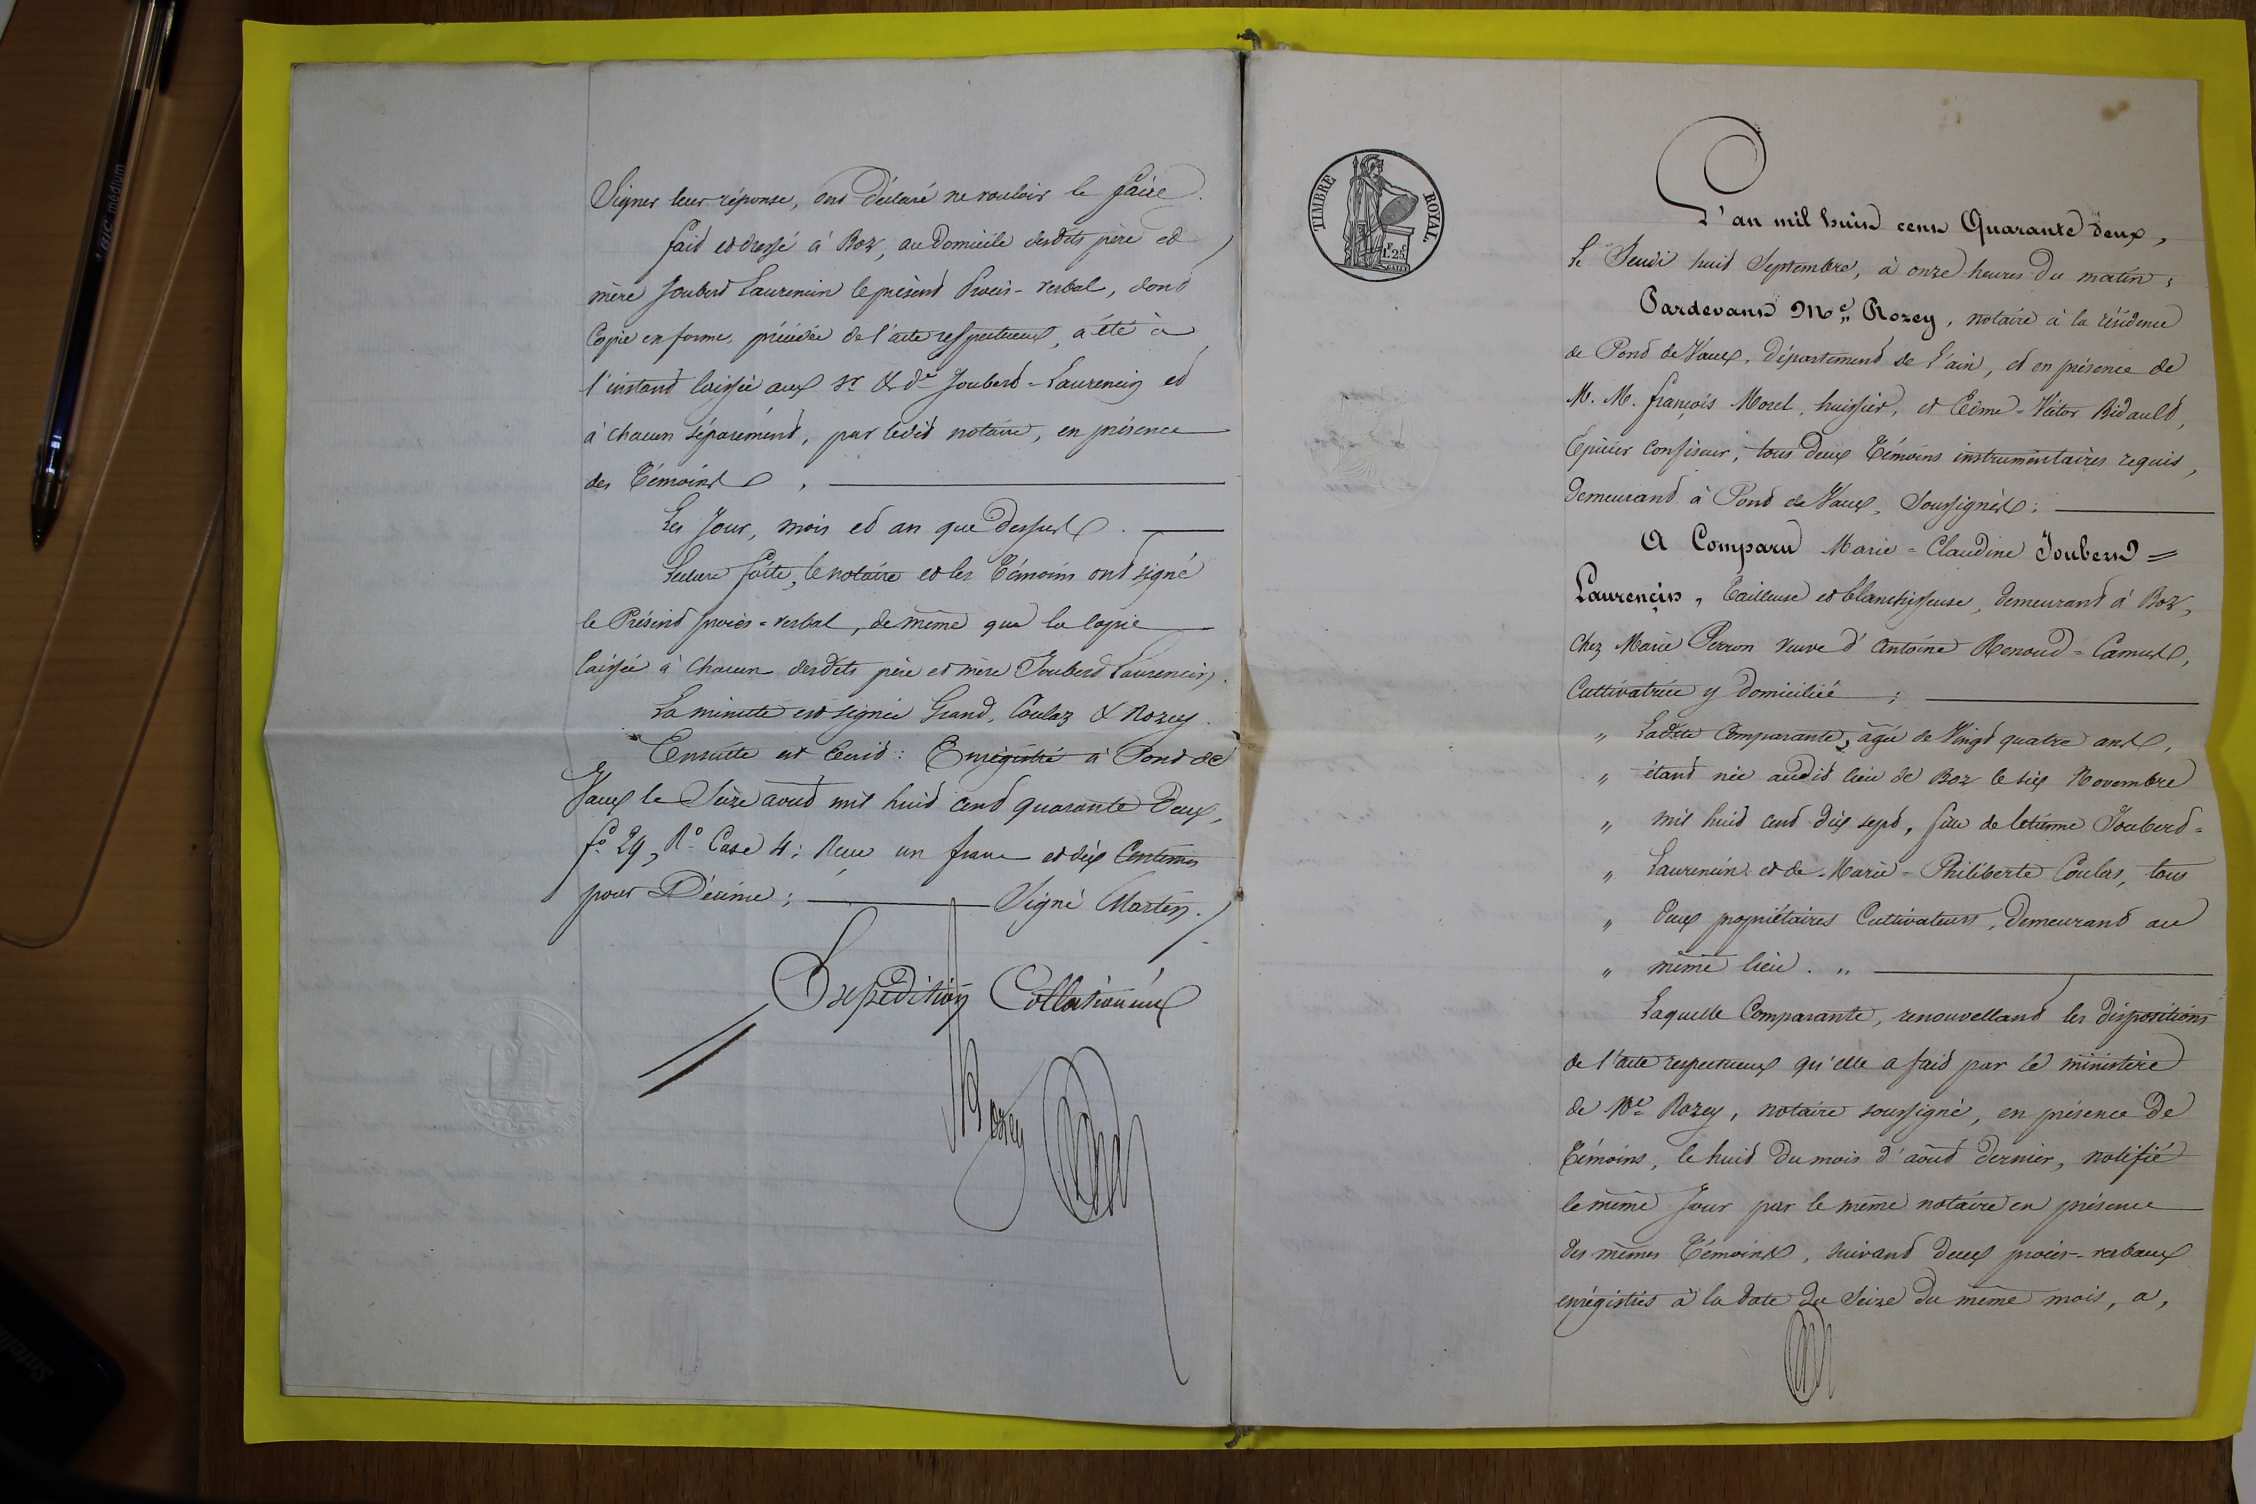 Signer leur réponse, ont déclaré ne vouloir le faire.
fait et dressé à Boz, au Domicile desdits père et
mère Joubert Laurencin le présent Procès-verbal, dont
Copie en forme, précédée de l'acte respectueux, a été à
l'instant laissée aux Sr & de Joubert-Laurencin et
à chacun séparément, par ledit notaire, en présence
des Témoins,
Les Jour, mois et an que dessus.
Lecture faite, le notaire et les Témoins ont signé
le Présent procès-verbal, de même que la copie
laissée à chacun desdits père et mère Joubert Laurencin.
La minute est signée Grand, Coulas & Rozey.
Ensuite est Écrit : Enregistré à Pont de
Vaux le Seize août mil huit cent quarante Deux,
fo 29, Ro Case 4 ; Reçu un franc et dix Centimes
pour Décime ; Signé Martin.
Expédition Collationnée
Rozey
TIMBRE ROYAL
1F.25C
L'an mil huit cent Quarante deux,
le Jeudi huit Septembre, à onze heures du matin ;
Pardevant Me Rozey, notaire à la résidence
de Pont de Vaux, Département de l'ain, et en présence de
M. M. françois Morel, huissier, et Edme-Victor Bidault,
Epicier confiseur, tous deux Témoins instrumentaires requis,
Demeurant à Pont de Vaux, Soussignés ;
A Comparu Marie=Claudine Joubert=
Laurençin, Tailleuse et blanchisseuse, demeurant à Boz,
chez Marie Perron veuve d'antoine Renoud=Camus,
Cultivatrice y domiciliée ;
„ Ladite Comparante, âgée de Vingt quatre ans,
„ étant née audit lieu de Boz le six Novembre
„ mil huit cent dix sept, fille de Etienne Joubert=
„ Laurencin et de Marie-Philiberte Coulas, tous
„ deux propriétaires Cultivateurs, Demeurant au
„ même lieu. „
Laquelle Comparante, renouvellant les dispositions
de l'acte respectueux qu'elle a fait par le ministère
de Me Rozey, notaire soussigné, en présence de
Témoins, le huit du mois d'août dernier, notifié
le même Jour par le même notaire en présence
des mêmes Témoins, suivant deux procès-verbaux
enrégistrés à la date du Seize du même mois, a,
BIC medium